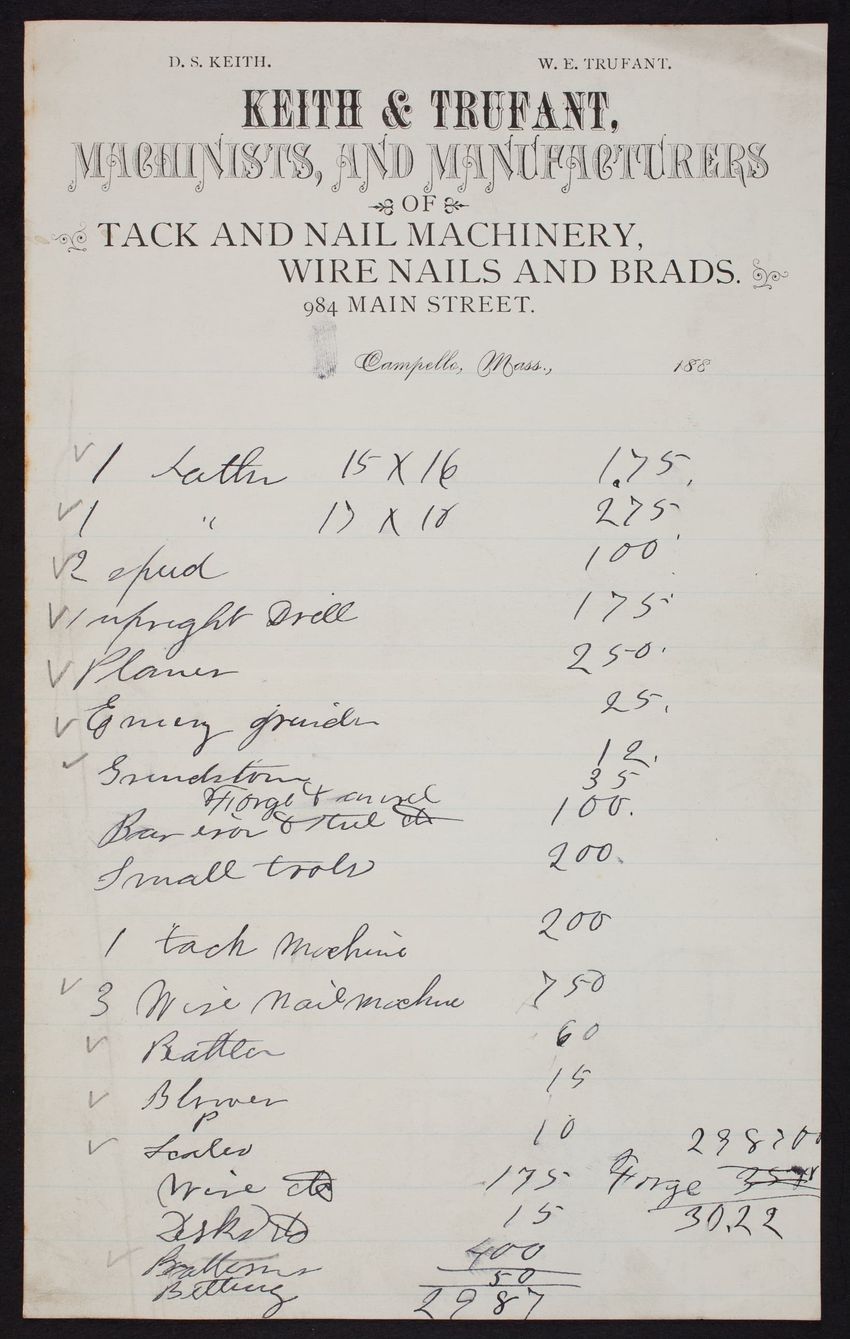 D. S. KEITH. W. E. TRUFANT.
KEITH & TRUFANT,
MACHINISTS, AND MANUFACTURERS
OF
TACK AND NAIL MACHINERY,
WIRE NAILS AND BRADS.
984 MAIN STREET.
Campello, Mass., 188
1 Lathe 15 X 16 175.
1 " 17 X 18 275
2 speed 100
1 upright Drill 175
Planer 250.
Emery grinder 25.
Grindstone 12.
Forge & anvil 35
Bar iron & steel 100.
Small tools 200.
1 tack Machine 200
3 Wire Nail Machine 750
Rattler 60
Blower 15
Scales 10 298700
Wire 175 Forge 35
Desks 15 30.22
Patterns 400
Belting 50
2987